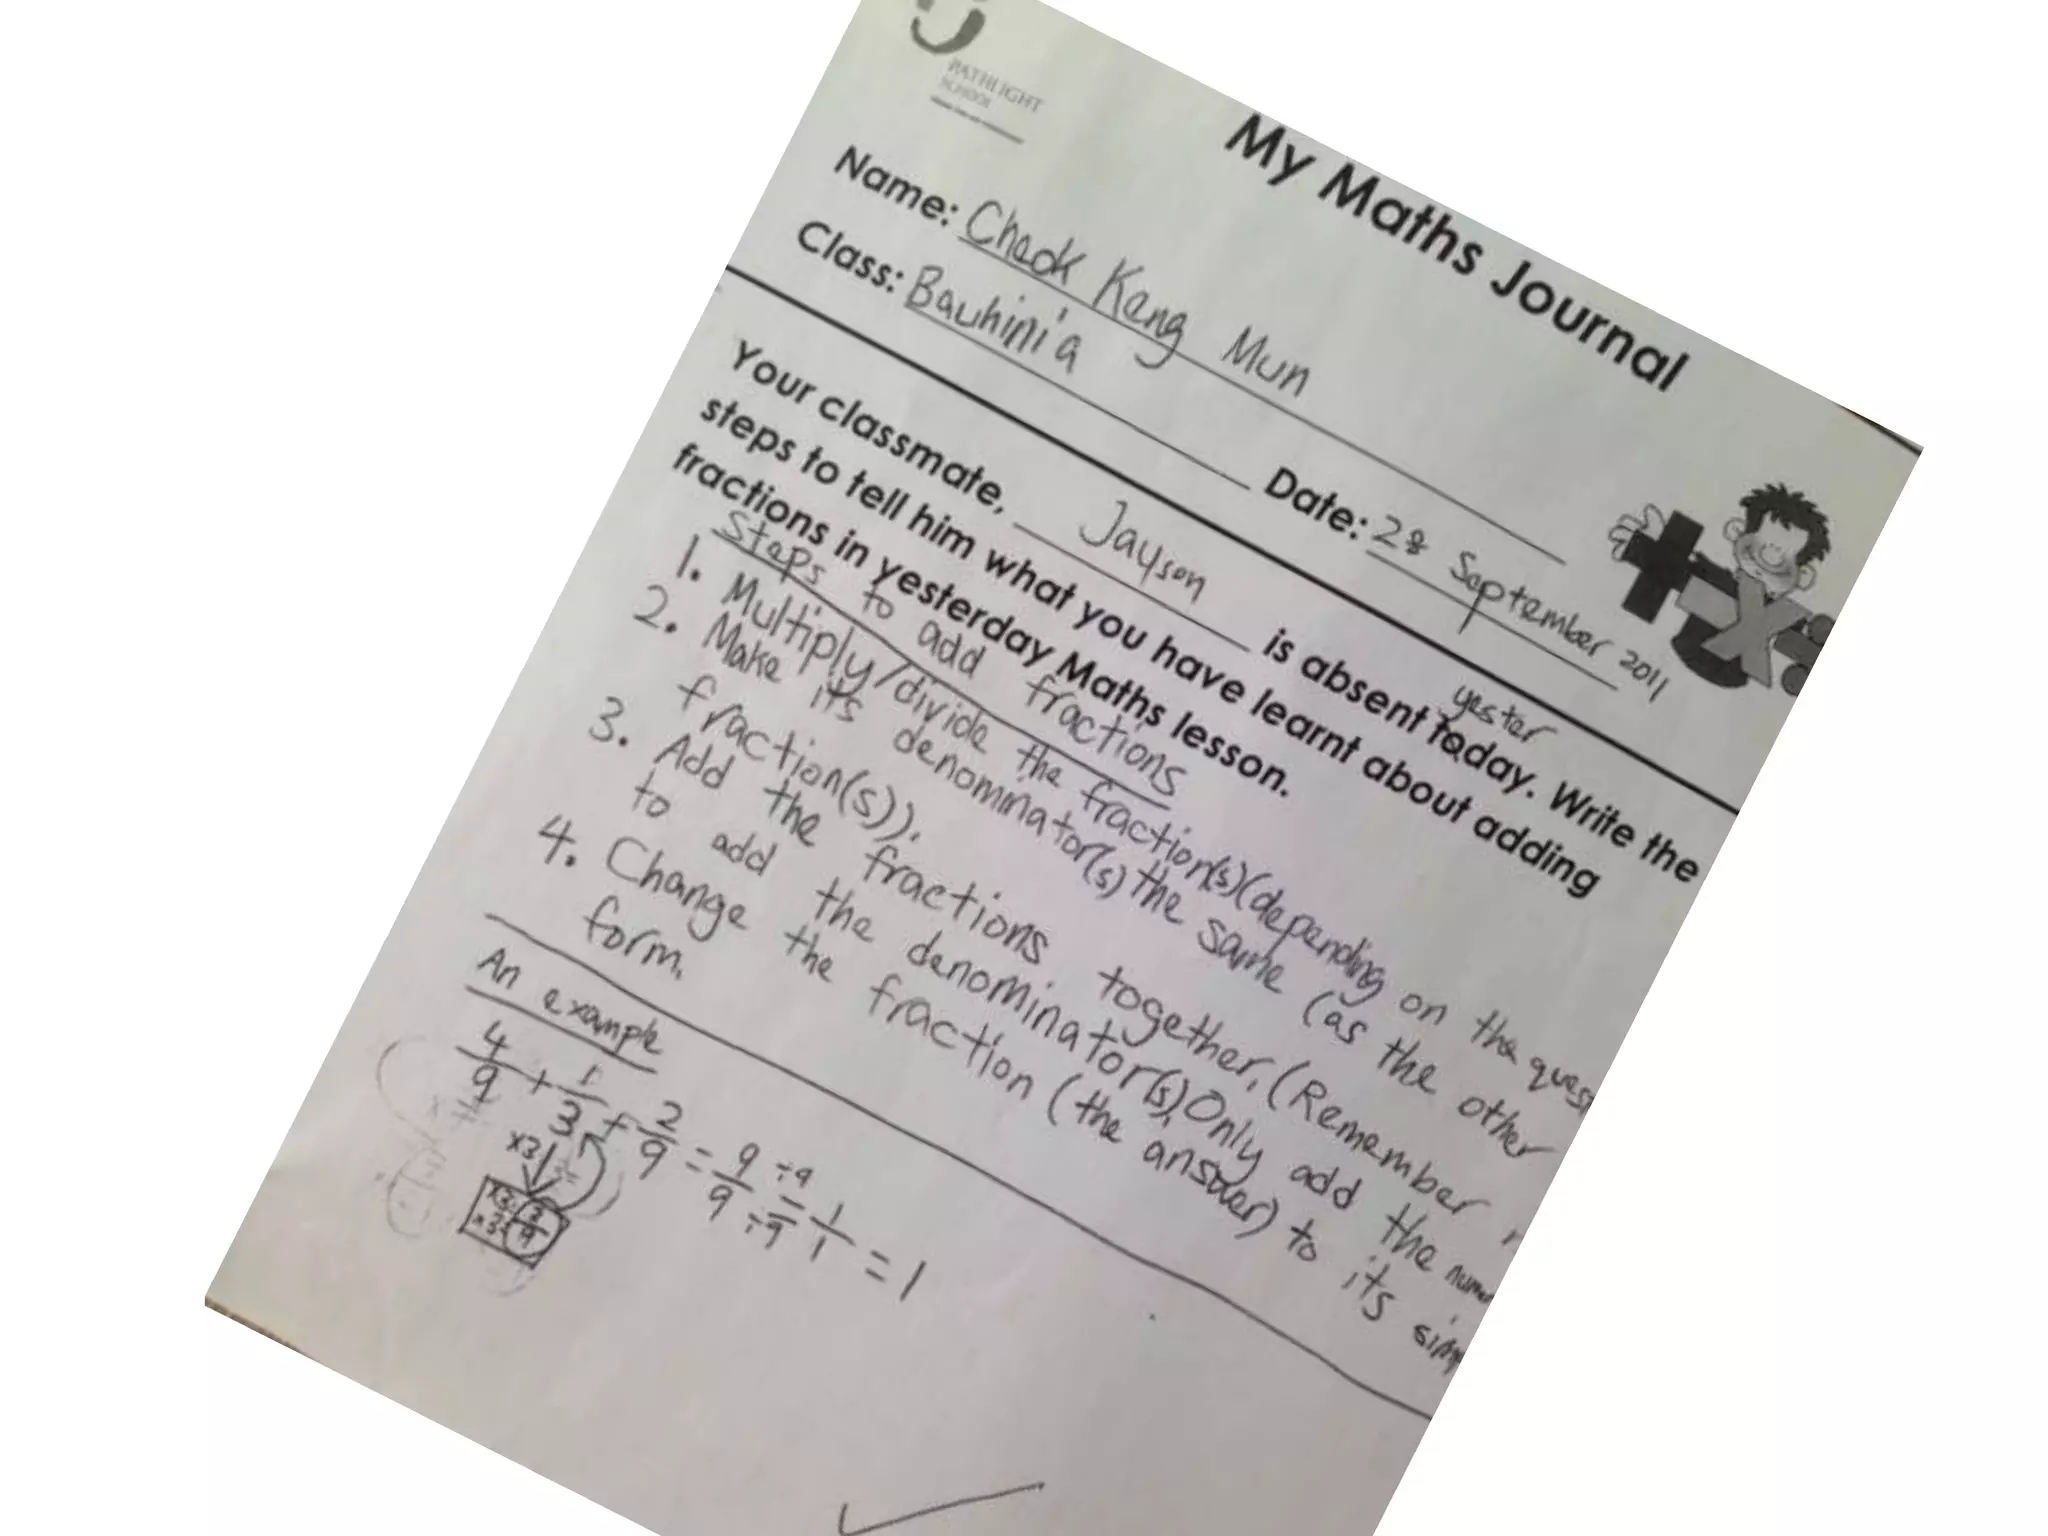 PATHLIGHT
SCHOOL
My Maths Journal
Name: Cheok Keng Mun
Class: Bauhinia Date: 28 September 2011
yester
Your classmate, Jayson is absent today. Write the
steps to tell him what you have learnt about adding
fractions in yesterday Maths lesson.
Steps to add fractions
1. Multiply/divide the fraction(s)(depending on the ques
2. Make its denominator(s) the same (as the other
fraction(s)).
3. Add the fractions together. (Remember n
to add the denominator(s). Only add the nume
4. Change the fraction (the answer) to its simp
form.
An example
4/9 + 1/3 + 2/9 = 9/9 ÷9/÷9 1/1 = 1
x3
x3 3
x3 9